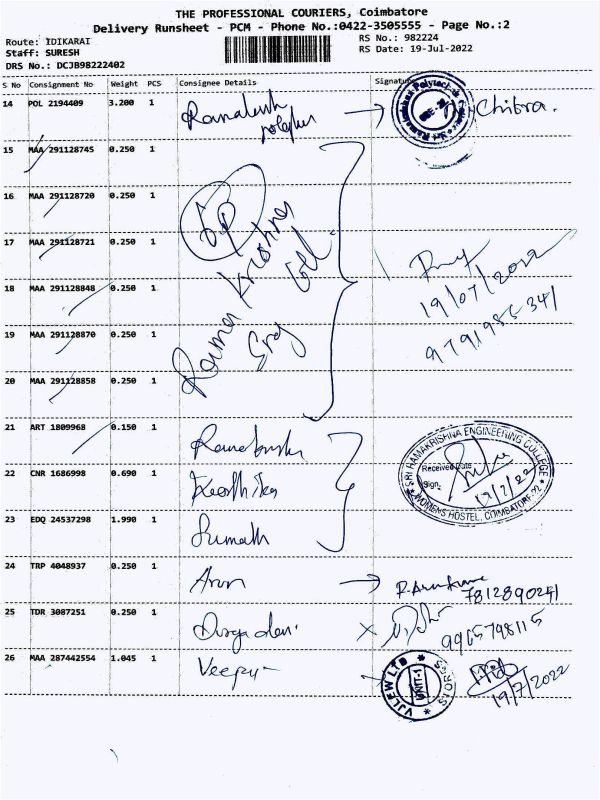 THE PROFESSIONAL COURIERS, Coimbatore
Delivery Runsheet - PCM - Phone No.:0422-3505555 - Page No.:2
Route: IDIKARAI
RS No.: 982224
Staff: SURESH
RS Date: 19-Jul-2022
DRS No.: DCJB98222402
S No Consignment No Weight PCS Consignee Details Signature
14 POL 2194409 3.200 1 Chitra.
15 MAA 291128745 0.250 1
16 MAA 291128720 0.250 1
17 MAA 291128721 0.250 1
18 MAA 291128848 0.250 1
19 MAA 291128870 0.250 1
20 MAA 291128858 0.250 1
Rama Krishna
19/07/2022
21 ART 1809968 0.150 1
22 CNR 1686998 0.690 1
23 EDQ 24537298 1.990 1
SRI RAMAKRISHNA ENGINEERING COLLEGE
Received Date
Sign.
19/7/22
WOMENS HOSTEL, COIMBATORE-22
24 TRP 4048937 0.250 1 Arun
7812890251
25 TDR 3087251 0.250 1
9965798115
26 MAA 287442554 1.045 1
VJLEW LTD
UNIT-1
19/7/2022